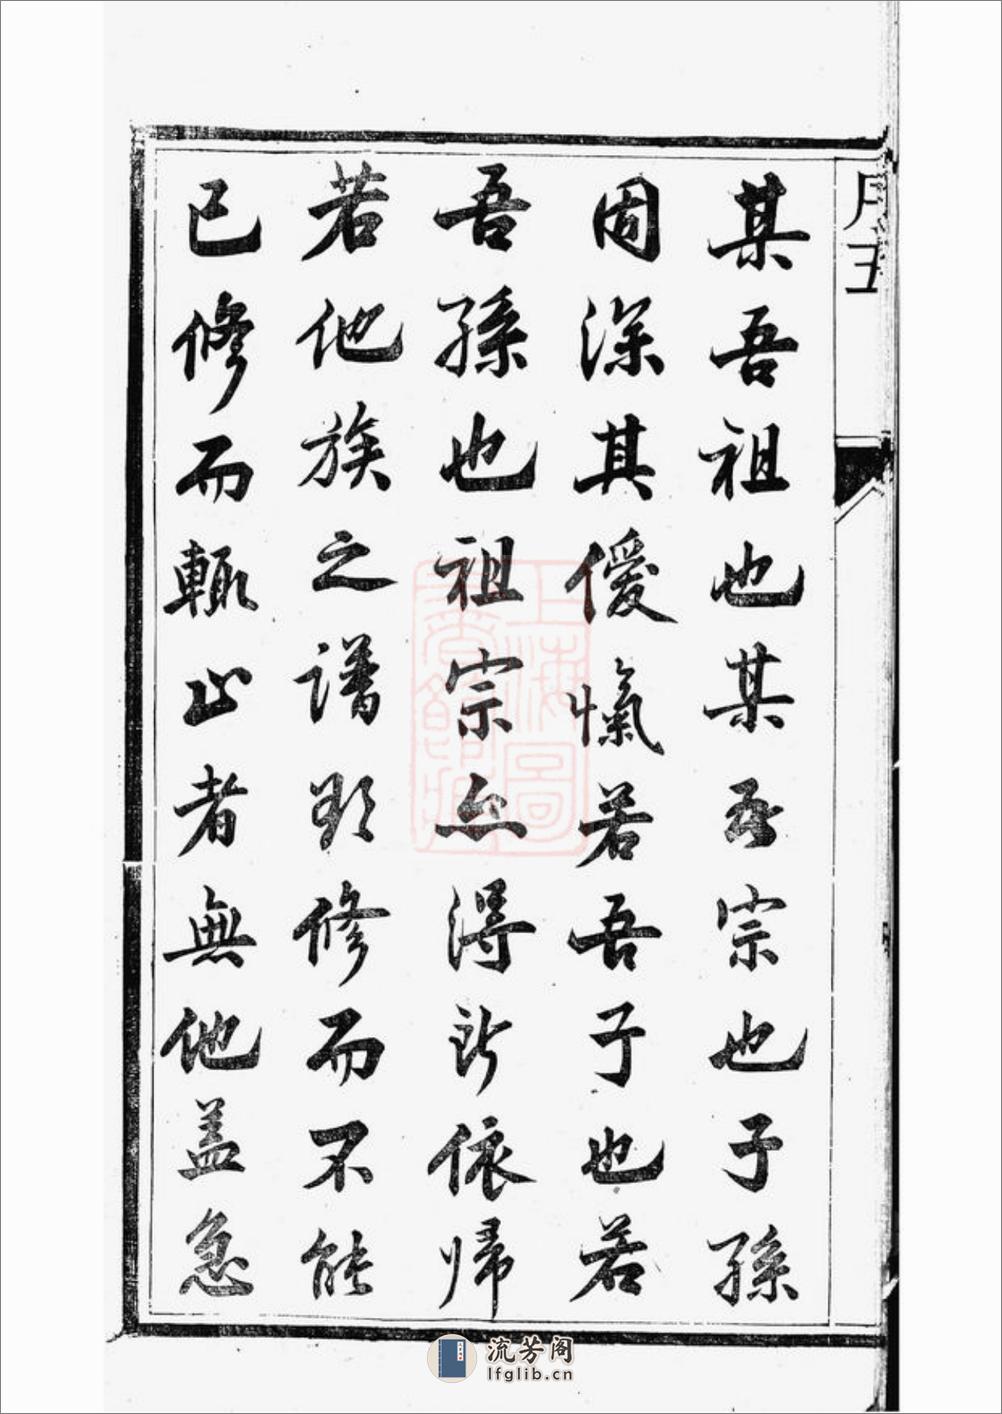 某吾祖也某吾宗也子孫
固深其僾愾若吾子也若
吾孫也祖宗亦得所依歸
若他族之譜欲修而不能
已修而輒止者無他蓋急
上海圖書館藏
流芳阁
lfglib.cn